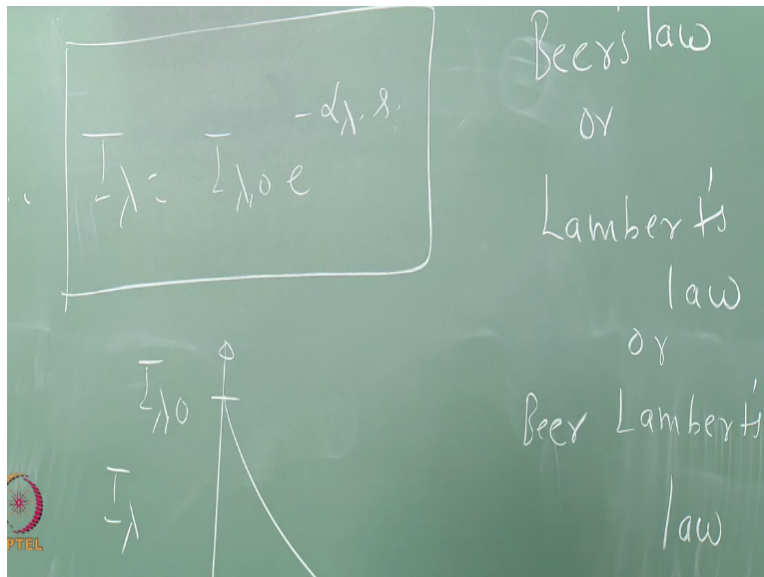 I_λ = I_λ0 e^{-α_λ.s.}
Beer's law
or
Lambert's
law
or
Beer Lambert's
law
I_λ0
I_λ
PTEL